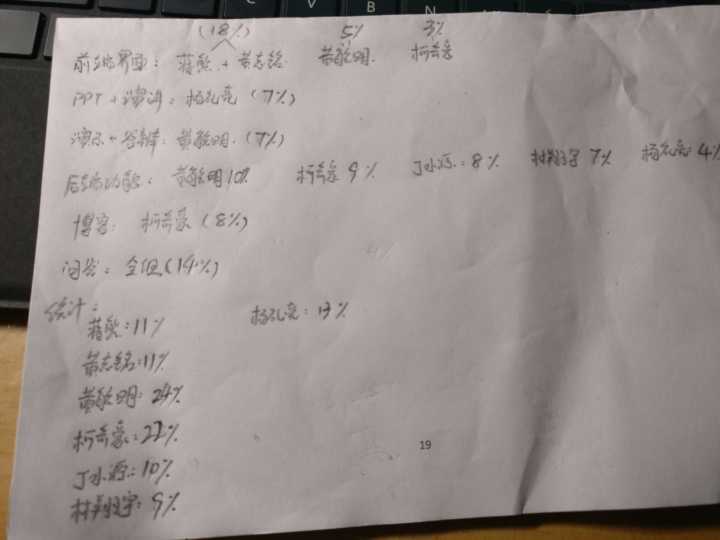 (18%) 5% 3%
前端界面: 蒋熊 + 黄志铭 黄敏明 柯奇豪
PPT + 演讲: 杨孔亮 (7%)
演示 + 答辩: 黄敏明. (7%)
后端功能: 黄敏明10% 柯奇豪 9% 丁水源: 8% 林翔宇 7% 杨孔亮 4%
博客: 柯奇豪 (8%)
问答: 全组(14%)
统计:
蒋熊: 11% 杨孔亮: 13%
黄志铭: 11%
黄敏明: 24%
柯奇豪: 22%
丁水源: 10%
林翔宇: 9%
19